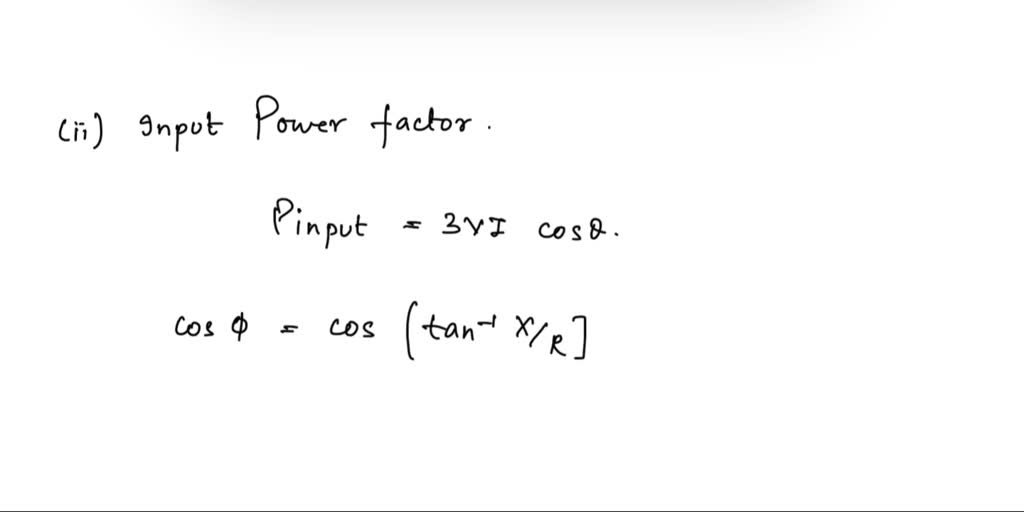 (ii) Input Power factor.
Pinput = 3VI cosθ.
cos ϕ = cos (tan⁻¹ X/R]